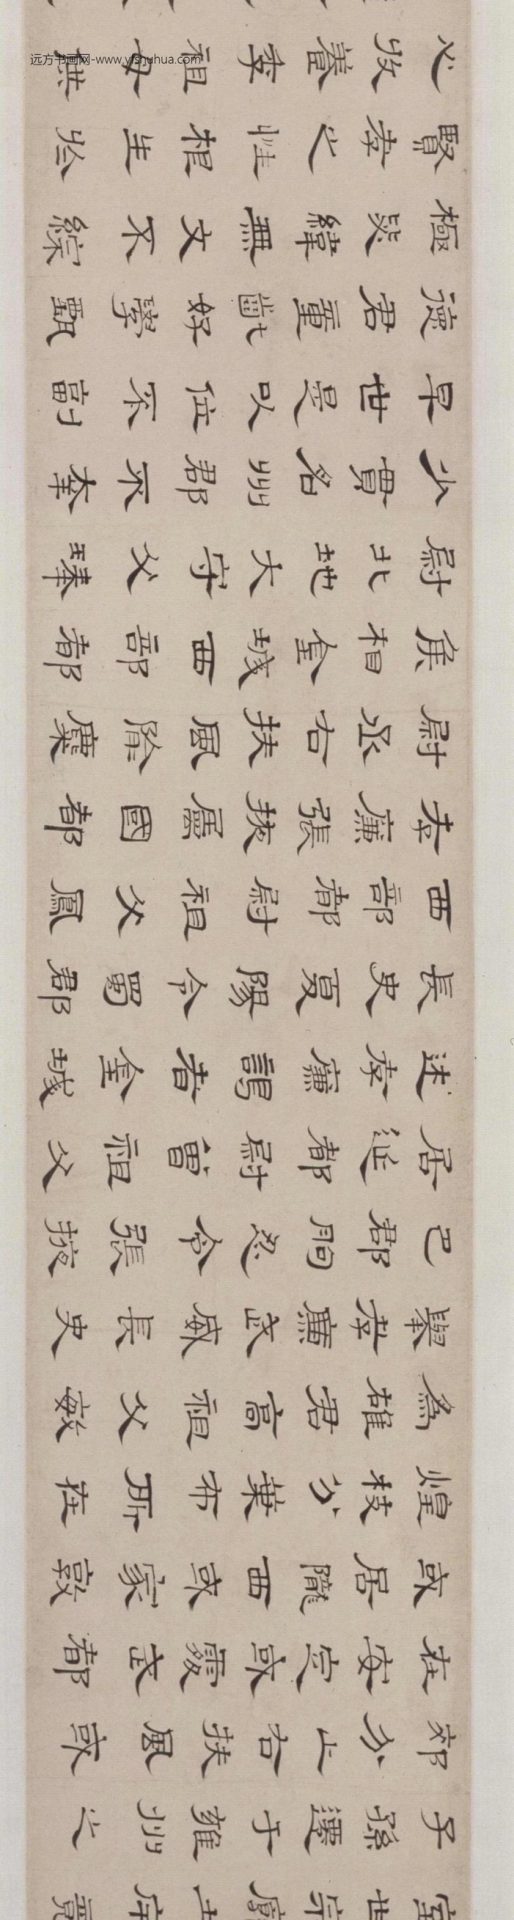 室世宗廓土斥竟
子孫遷于雍州之
郊分止右扶風或
在安定或處武都
或居隴西或家敦
煌枝分葉布所在
為雄君高祖父敏
舉孝廉武威長史
巴郡朐忍令張掖
居延都尉曾祖父
述孝廉謁者金城
長史夏陽令蜀郡
西部都尉祖父鳳
孝廉張掖屬國都
尉丞右扶風隃麋
侯相金城西部都
尉北地大守父琫
少貫名州郡不幸
早世是以位不副
德君童齔好學甄
極毖緯無文不綜
賢孝之性根生於
心收養季祖母供
远方书画网-www.yfshuhua.com